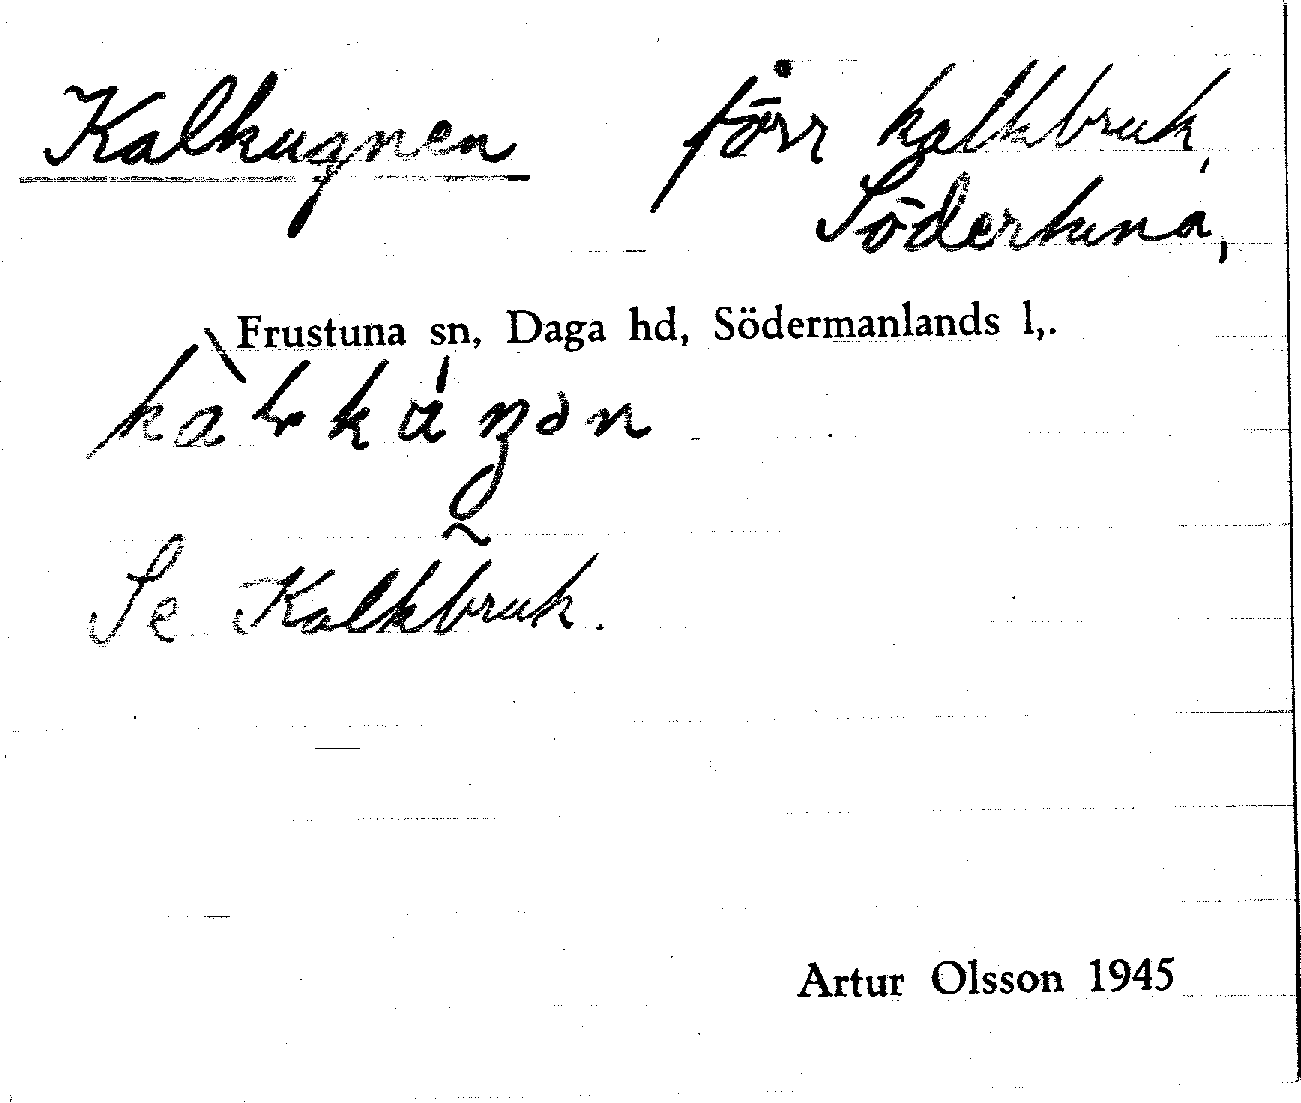 Kalkugnen förr kalkbruk,
Södertuna,
Frustuna sn, Daga hd, Södermanlands l,.
Se Kalkbruk.
Artur Olsson 1945